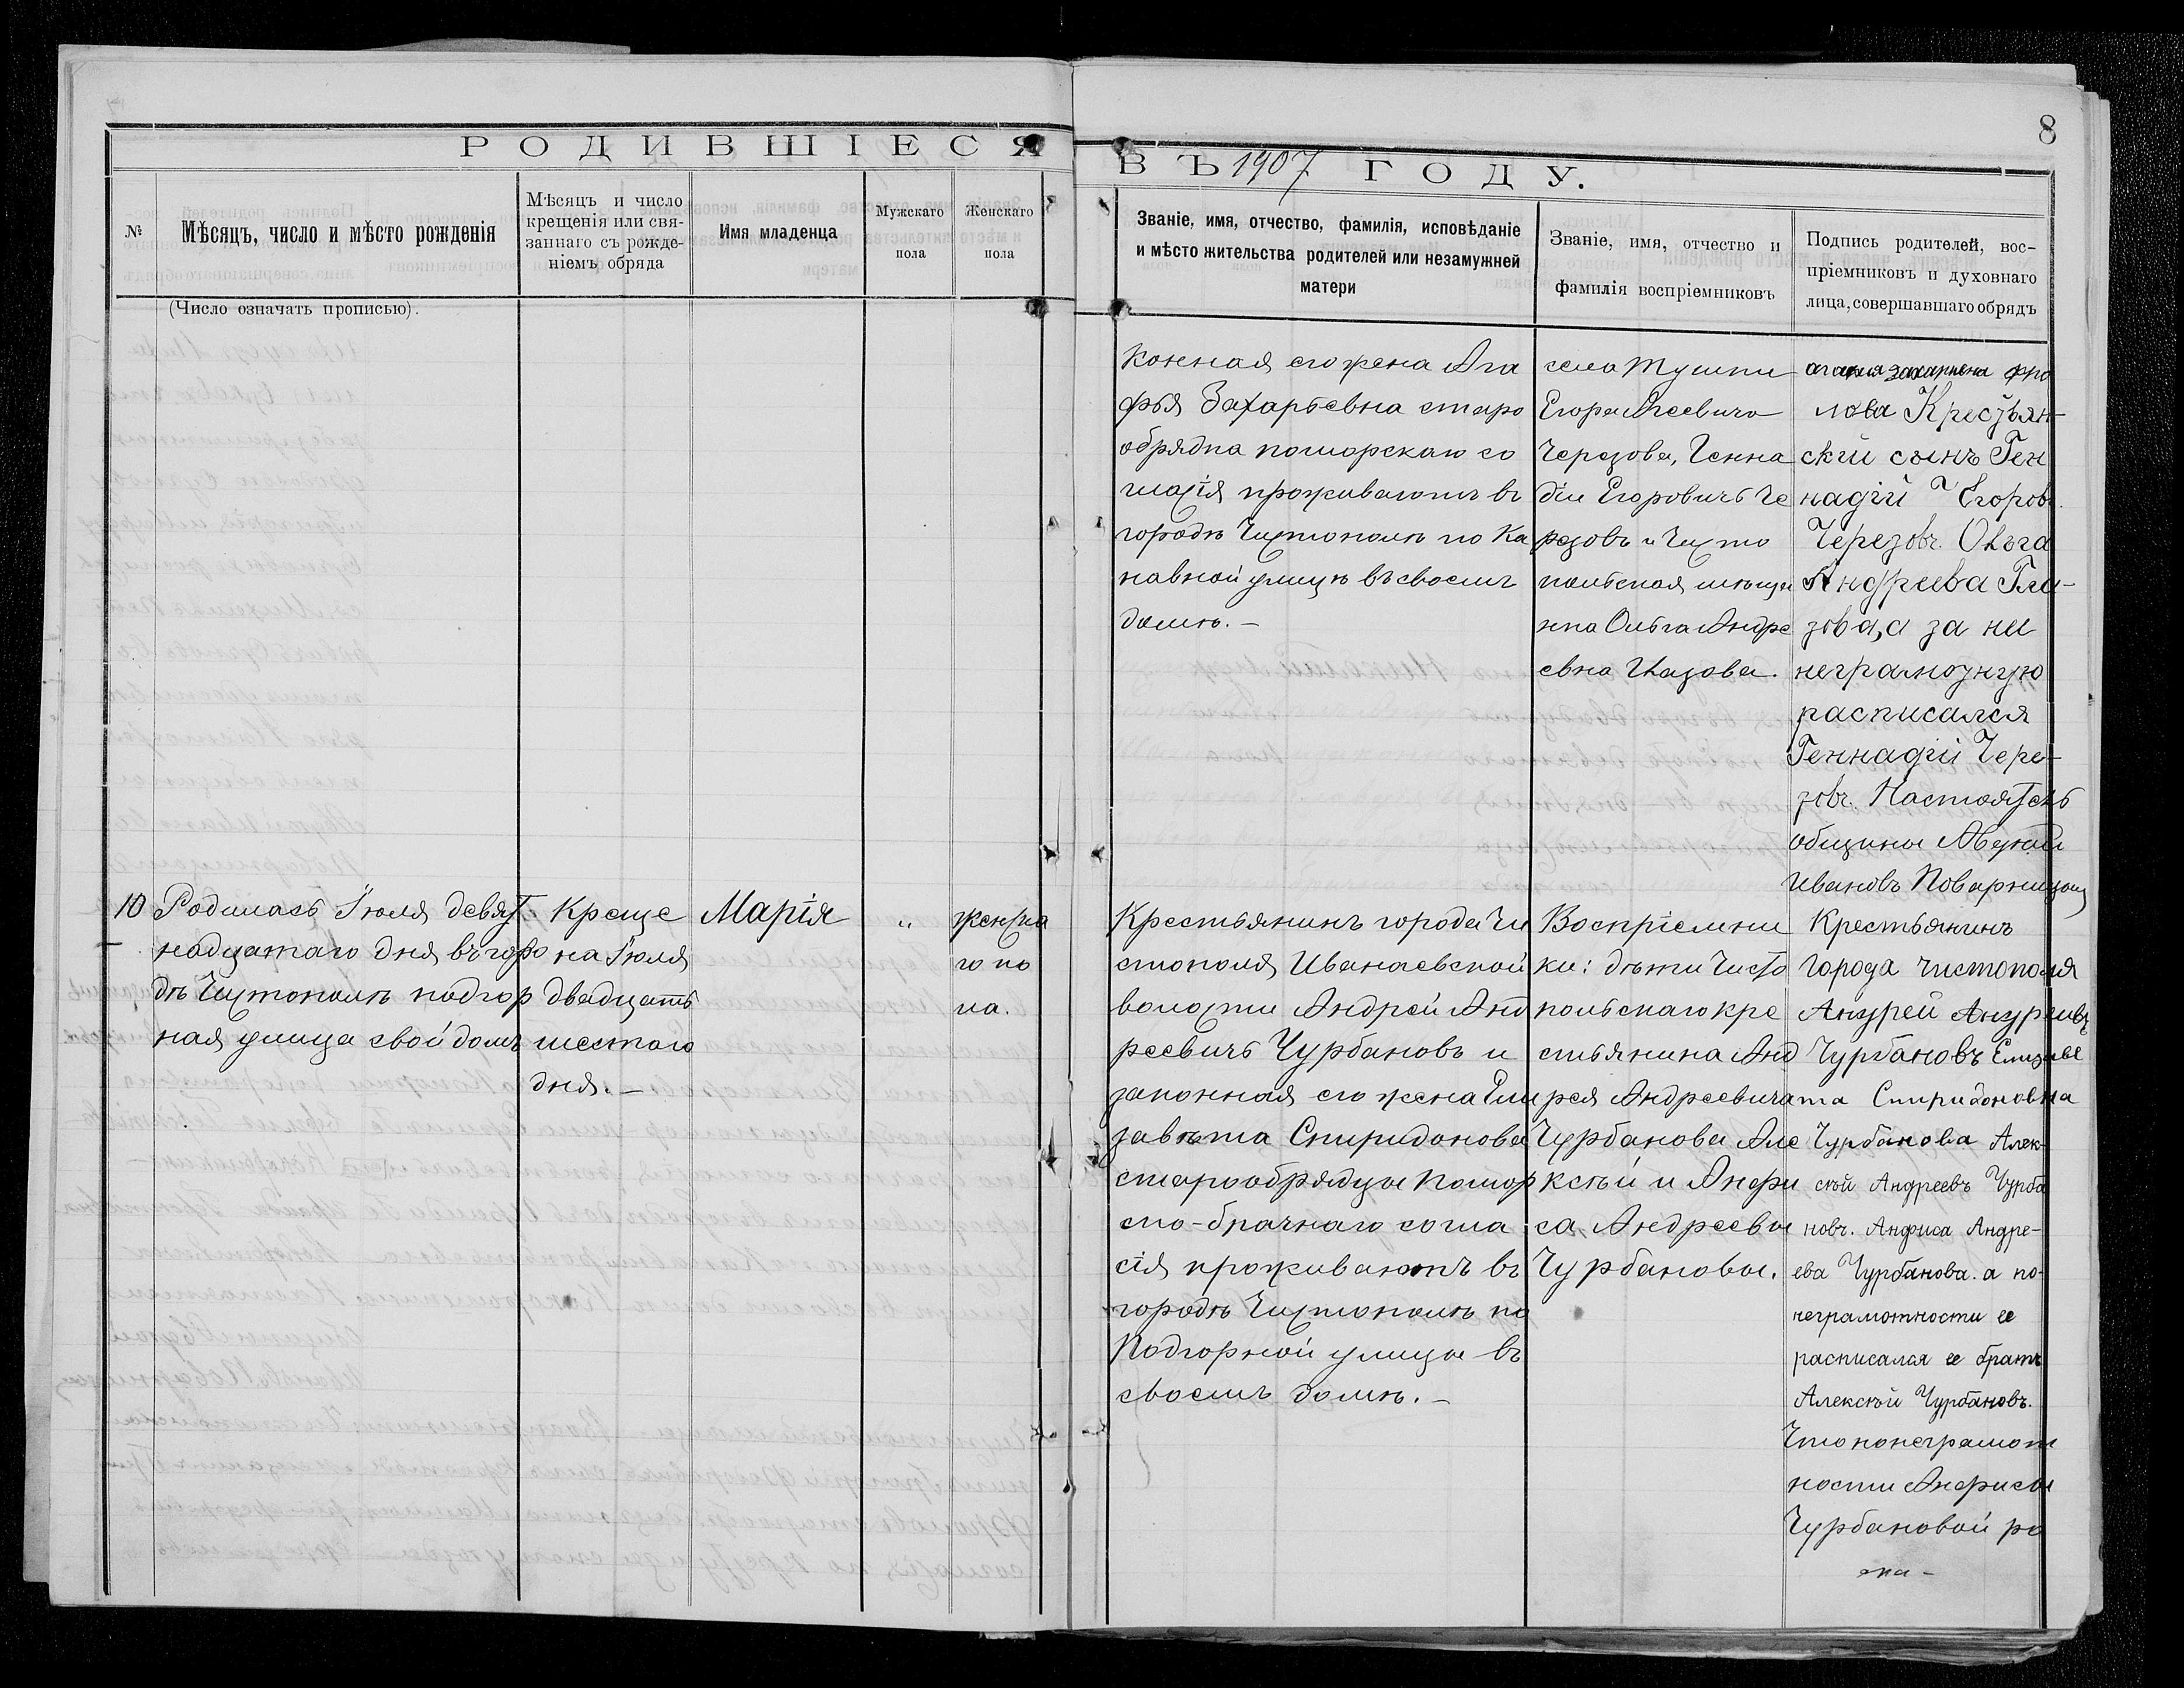 РОДИВШІЕСЯ
ВЪ 1907 ГОДУ.
8
№
Мѣсяцъ, число и мѣсто рожденія
(Число означать прописью).
Мѣсяцъ и число
крещенія или свя-
заннаго съ рожде-
ніемъ обряда
Имя младенца
Мужскаго
пола
Женскаго
пола
Званіе, имя, отчество, фамилія, исповѣданіе
и мѣсто жительства родителей или незамужней
матери
Званіе, имя, отчество и
фамилія воспріемниковъ
Подпись родителей, вос-
пріемниковъ и духовнаго
лица, совершавшаго обрядъ
конная его жена Ага
фья Захарьевна старо
обрядца поморскаго со
гласія проживаютъ въ
городѣ Чистополѣ по Ка
навной улицѣ въ своемъ
домѣ. –
села
Егора
Черезова, Генна
дій Егоровичъ Че
резовъ и Чисто
польская мѣща
нка Ольга Андре
евна Глазова.
лова Крестьян-
скій сынъ Ген
надій Егоровъ
Черезовъ. Ольга
Андреева Гла-
зова, а за не
неграмотную
расписался
Геннадій Чере-
зовъ. Настоятель
общины
Ивановъ Поварницын
10
Родилась Іюля девят
надцатаго дня въ горо
дѣ Чистополѣ подгор
ная улица свой домъ
Креще
на Іюля
двадцать
шестого
дня. –
Марія
"
женска
го по
ла.
Крестьянинъ города Чи
стополя Иванаевской
волости Андрей Анд
реевичъ Чурбановъ и
законная его жена Ели
завета Спиридонова
старообрядцы Помор
ско-брачнаго согла
сія проживаютъ въ
городѣ Чистополѣ по
Подгорной улицѣ въ
своемъ домѣ. –
Воспріемни
ки: дѣти Чисто
польскаго кре
стьянина Анд
рея Андреевича
Чурбанова Але
ксѣй и Анфи
са Андреевы
Чурбановы.
Крестьянинъ
города чистополя
Андрей Андреевъ
Чурбановъ Елизаве
та Спиридоновна
Чурбанова Алек-
сѣй Андреевъ Чурба
новъ. Анфиса Андре-
ева Чурбанова. а по-
неграмотности ее
расписался ее братъ
Алексѣй Чурбановъ.
Что по неграмот
ности Анфисы
Чурбановой ро